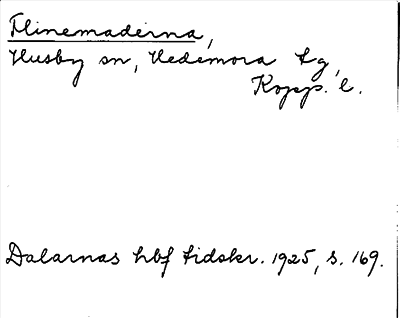 Flinemaderna,
Husby sn, Hedemora tg,
Kopp. l.
Dalarnas hbf tidskr. 1925, s. 169.